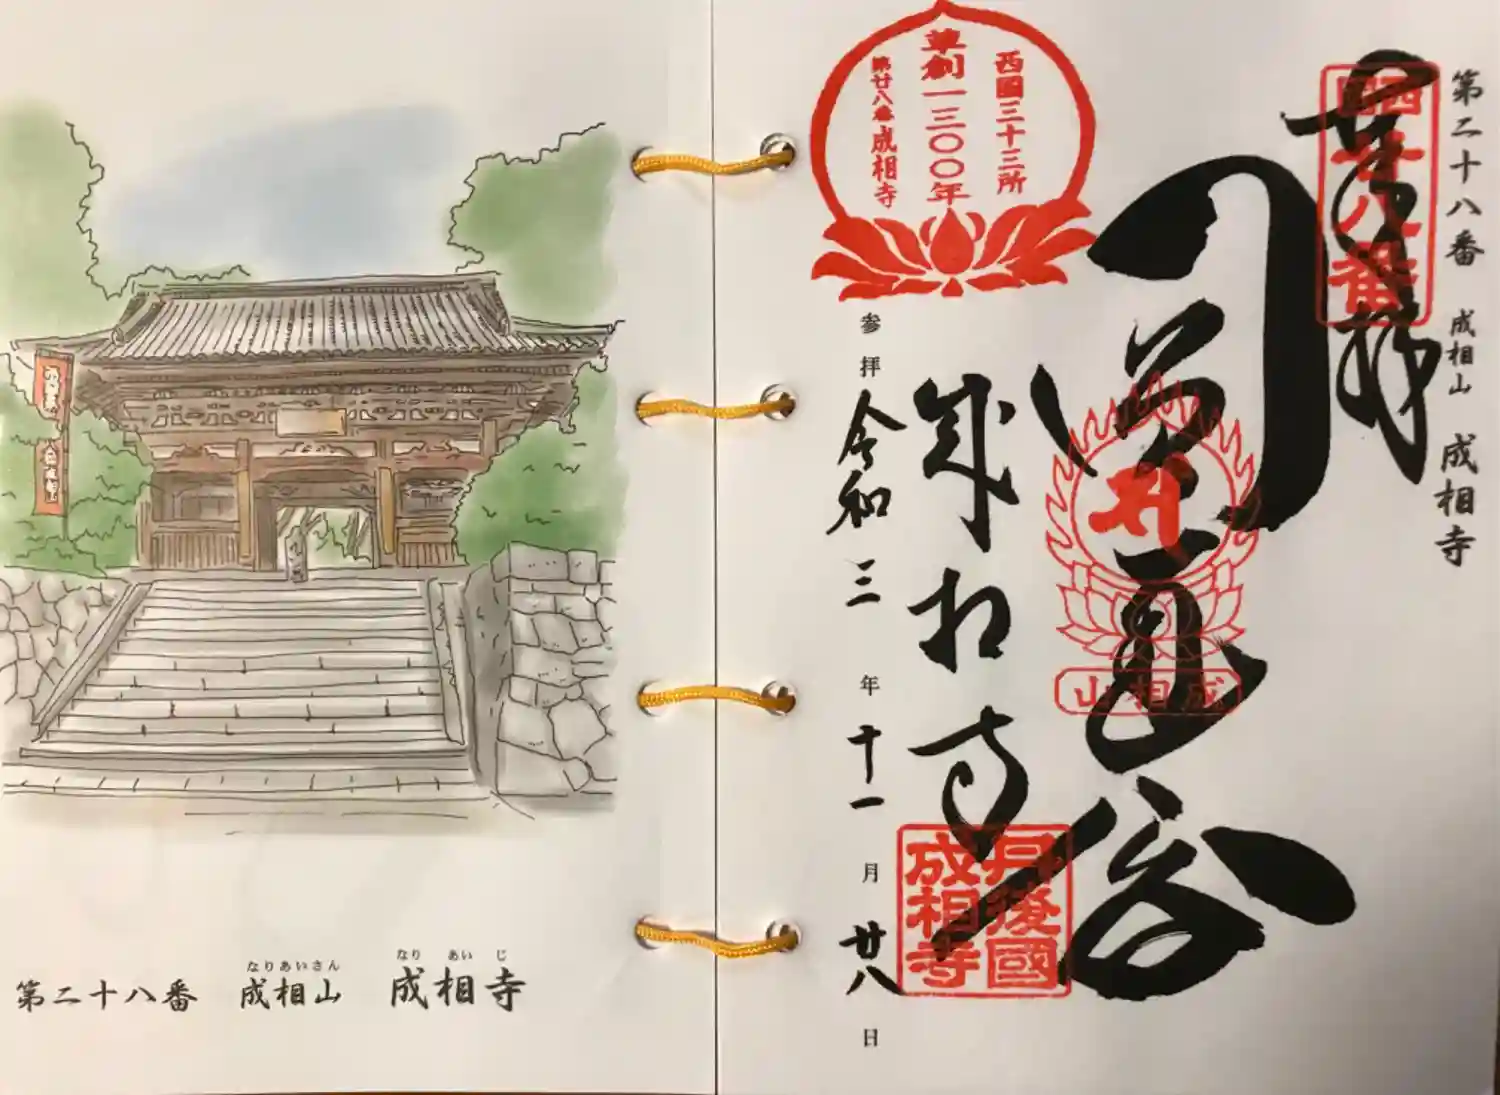 第二十八番 成相山 成相寺
奉拝
西国
廿八番
西國三十三所
草創一三〇〇年
第廿八番 成相寺
成相山
成相寺
丹後國
成相寺
参拝 令和三年十一月廿八日
なりあいさん なり あい じ
第二十八番 成相山 成相寺